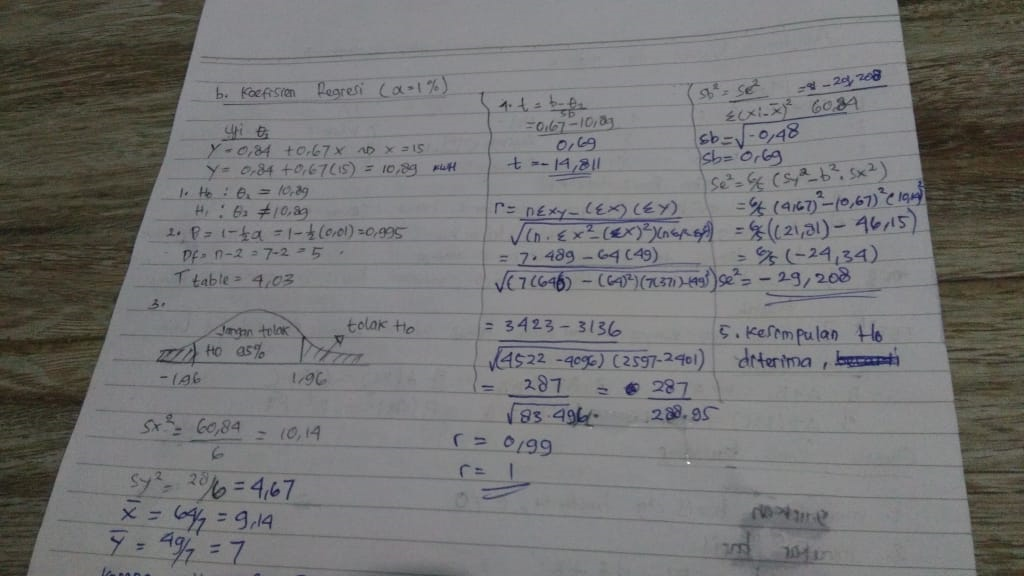 b. Koefisien Regresi (α=1%)
Uji θ₂
Y = 0,84 + 0,67 x → x = 15
Y = 0,84 + 0,67 (15) = 10,89
1. Ho : θ₂ = 10,89
H₁ : θ₂ ≠ 10,89
2. P = 1-½α = 1-½(0,01) = 0,995
Df = n-2 = 7-2 = 5
T table = 4,03
3.
Jangan tolak
Ho 95%
tolak Ho
-1,96 1,96
Sx² = 60,84/6 = 10,14
Sy² = 28/6 = 4,67
x̄ = 64/7 = 9,14
ȳ = 49/7 = 7
4. t = (b-θ₂)/Sb
= (0,67-10,89)/0,69
t = -14,811
r = (nΣxy - (Σx)(Σy))
= 7.489 - 64(49)
= 3423 - 3136
√(4522 - 4096)(2597-2401)
= 287/√83.496 = 287/288.95
r = 0,99
r = 1
Sb² = Se²/Σ(xi-x̄)² = -29,208/60,84
Sb = √-0,48
Sb = 0,69
Se² = 6/5 (Sy²-b².Sx²)
= 6/5 (4,67)²-(0,67)²
= 6/5 ((21,81) - 46,15)
= 6/5 (-24,34)
Se² = -29,208
5. Kesimpulan Ho
diterima,